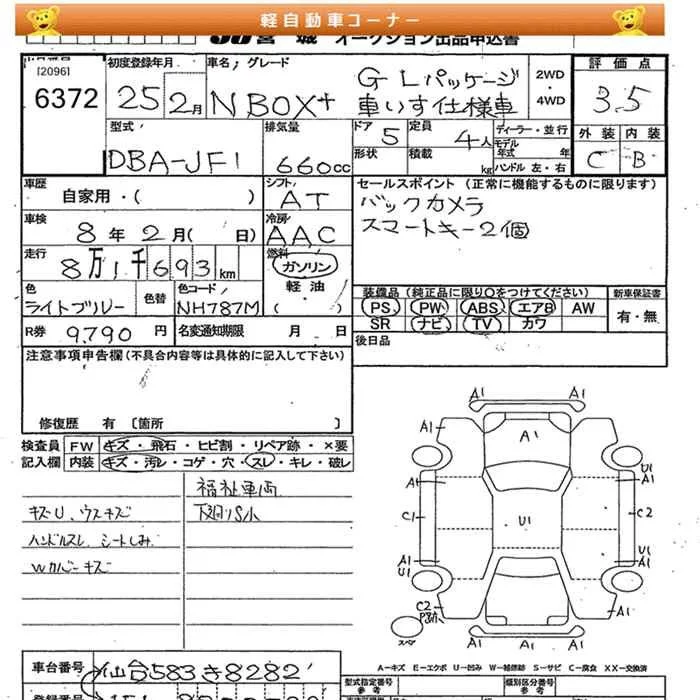 軽自動車コーナー
JU 宮城 オークション出品申込書
[2096]
6372
初度登録年月
25 2月
車名; グレード
N BOX+
G Lパッケージ
車いす仕様車
2WD
・
4WD
評価点
3.5
型式
DBA-JF1
排気量
660cc
ドア 5
形状
定員 4人
積載 kg
ディーラー・並行
モデル年式 年
ハンドル 左・右
外装 内装
C B
車歴
自家用・( )
シフト
AT
セールスポイント (正常に機能するものに限ります)
バックカメラ
スマートキー2個
車検
8年2月( 日)
冷房
AAC
走行
8万1千693km
燃料
ガソリン
軽油
( )
色
ライトブルー
色替
色コード
NH787M
装備品 (純正品に限り〇をつけてください)
新車保証書
PS PW ABS エアB AW
SR ナビ TV カワ
有・無
R券 9,790円
名変通知期限 月 日
後日品
注意事項申告欄 (不具合内容等は具体的に記入して下さい)
修復歴 有 [箇所 ]
検査員 FW キズ・飛石・ヒビ割・リペア跡・×要
記入欄 内装 キズ・汚レ・コゲ・穴・スレ・キレ・破レ
福祉車両
キズU、ウスキズ
下廻りS小
ハンドルスレ、シートしみ、
Wカバーキズ
A1 A1
A1 A1 A1
U1
A1 A1
C1 U1 C2
U1
A1 A1
U1
C2
A1 A1
スペア
A-キズ E-エクボ U-凹み W-補修跡 S-サビ C-腐食 XX-交換済
車台番号
仙台583き8282
型式指定番号
参考
類別区分番号
参考